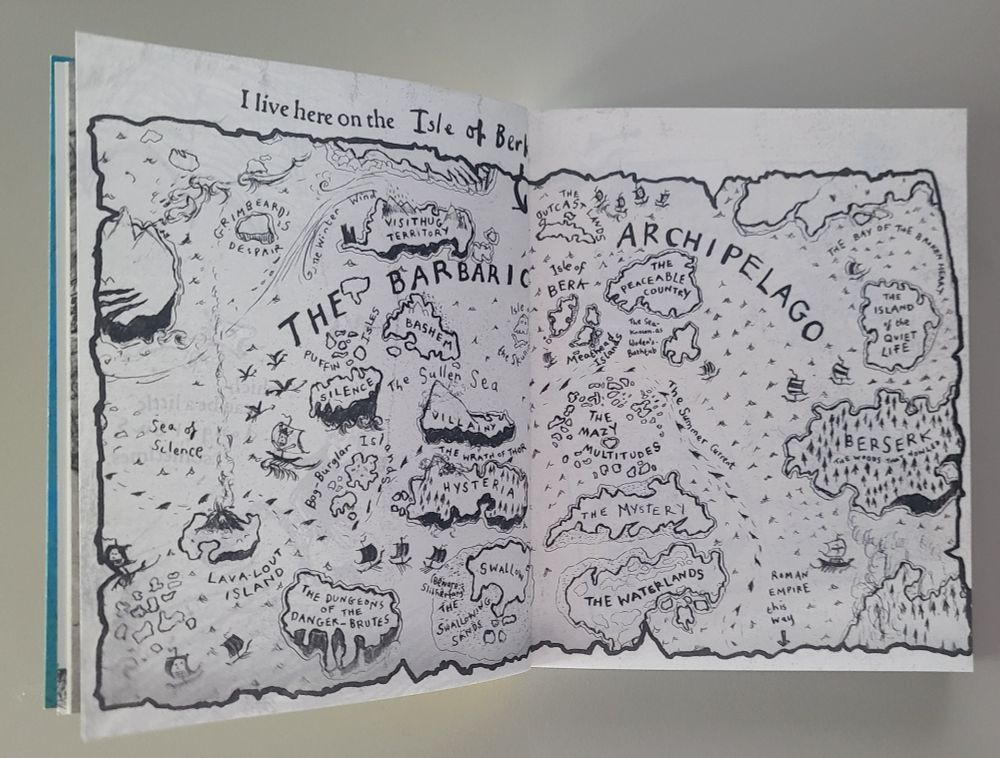 I live here on the Isle of Berk
THE BARBARIC ARCHIPELAGO
GRIMBEARD'S
DESPAIR
the Winter Wind
VISITHUG
TERRITORY
THE
OUTCAST
LANDS
THE BAY OF THE BROKEN HEART
Isle of
BERK
THE
PEACEABLE
COUNTRY
THE
ISLAND
of the
QUIET
LIFE
PUFFIN ISLES
BASHEM
Isle
the
Meathead
Islands
The Sea-
Known-as
Woden's-
Bathtub
SILENCE
The Sullen Sea
VILLAINY
THE WRATH OF THOR
HYSTERIA
Sea of
Silence
Bog Burglar
Islands
THE
MAZY
MULTITUDES
The Summer Current
BERSERK
THE MYSTERY
LAVA-LOUT
ISLAND
THE DUNGEONS
OF THE
DANGER-BRUTES
Beware:
THE
SWALLOWING
SANDS
SWALLOW
THE WATERLANDS
ROMAN
EMPIRE
this
way